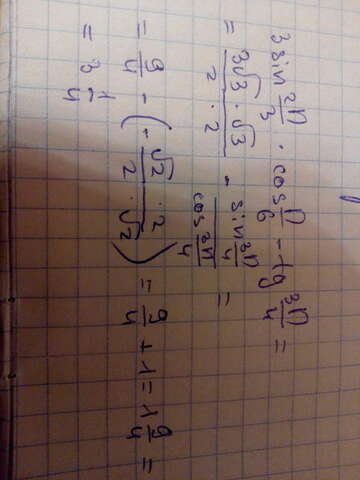 3 sin 2π/3 · cos π/6 - tg 3π/4 =
= 3√3 · √3 / 2 · 2 - sin 3π/4 / cos 3π/4 =
= 9/4 - (- √2 · 2 / 2 · √2) = 9/4 + 1 = 1 9/4 =
= 3 1/4